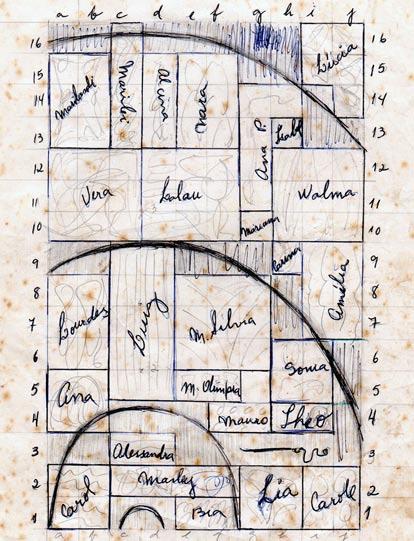 a b c d e f g h i j
16 16
Lúcia
15 15
Marilu
Alcina
Nara
14 14
Ana P.
13 13
12 12
Vera
Lalau
Walma
11 11
Mariana
10 10
9 9
Amélia
8 8
Lourdes
Luiz
M. Silvia
7 7
6 6
Sonia
M. Olimpia
5 5
Ana
Mauro
Theo
4 4
3 3
Alessandra
Marley
2 2
Carol
Lia
Carole
Bia
1 1